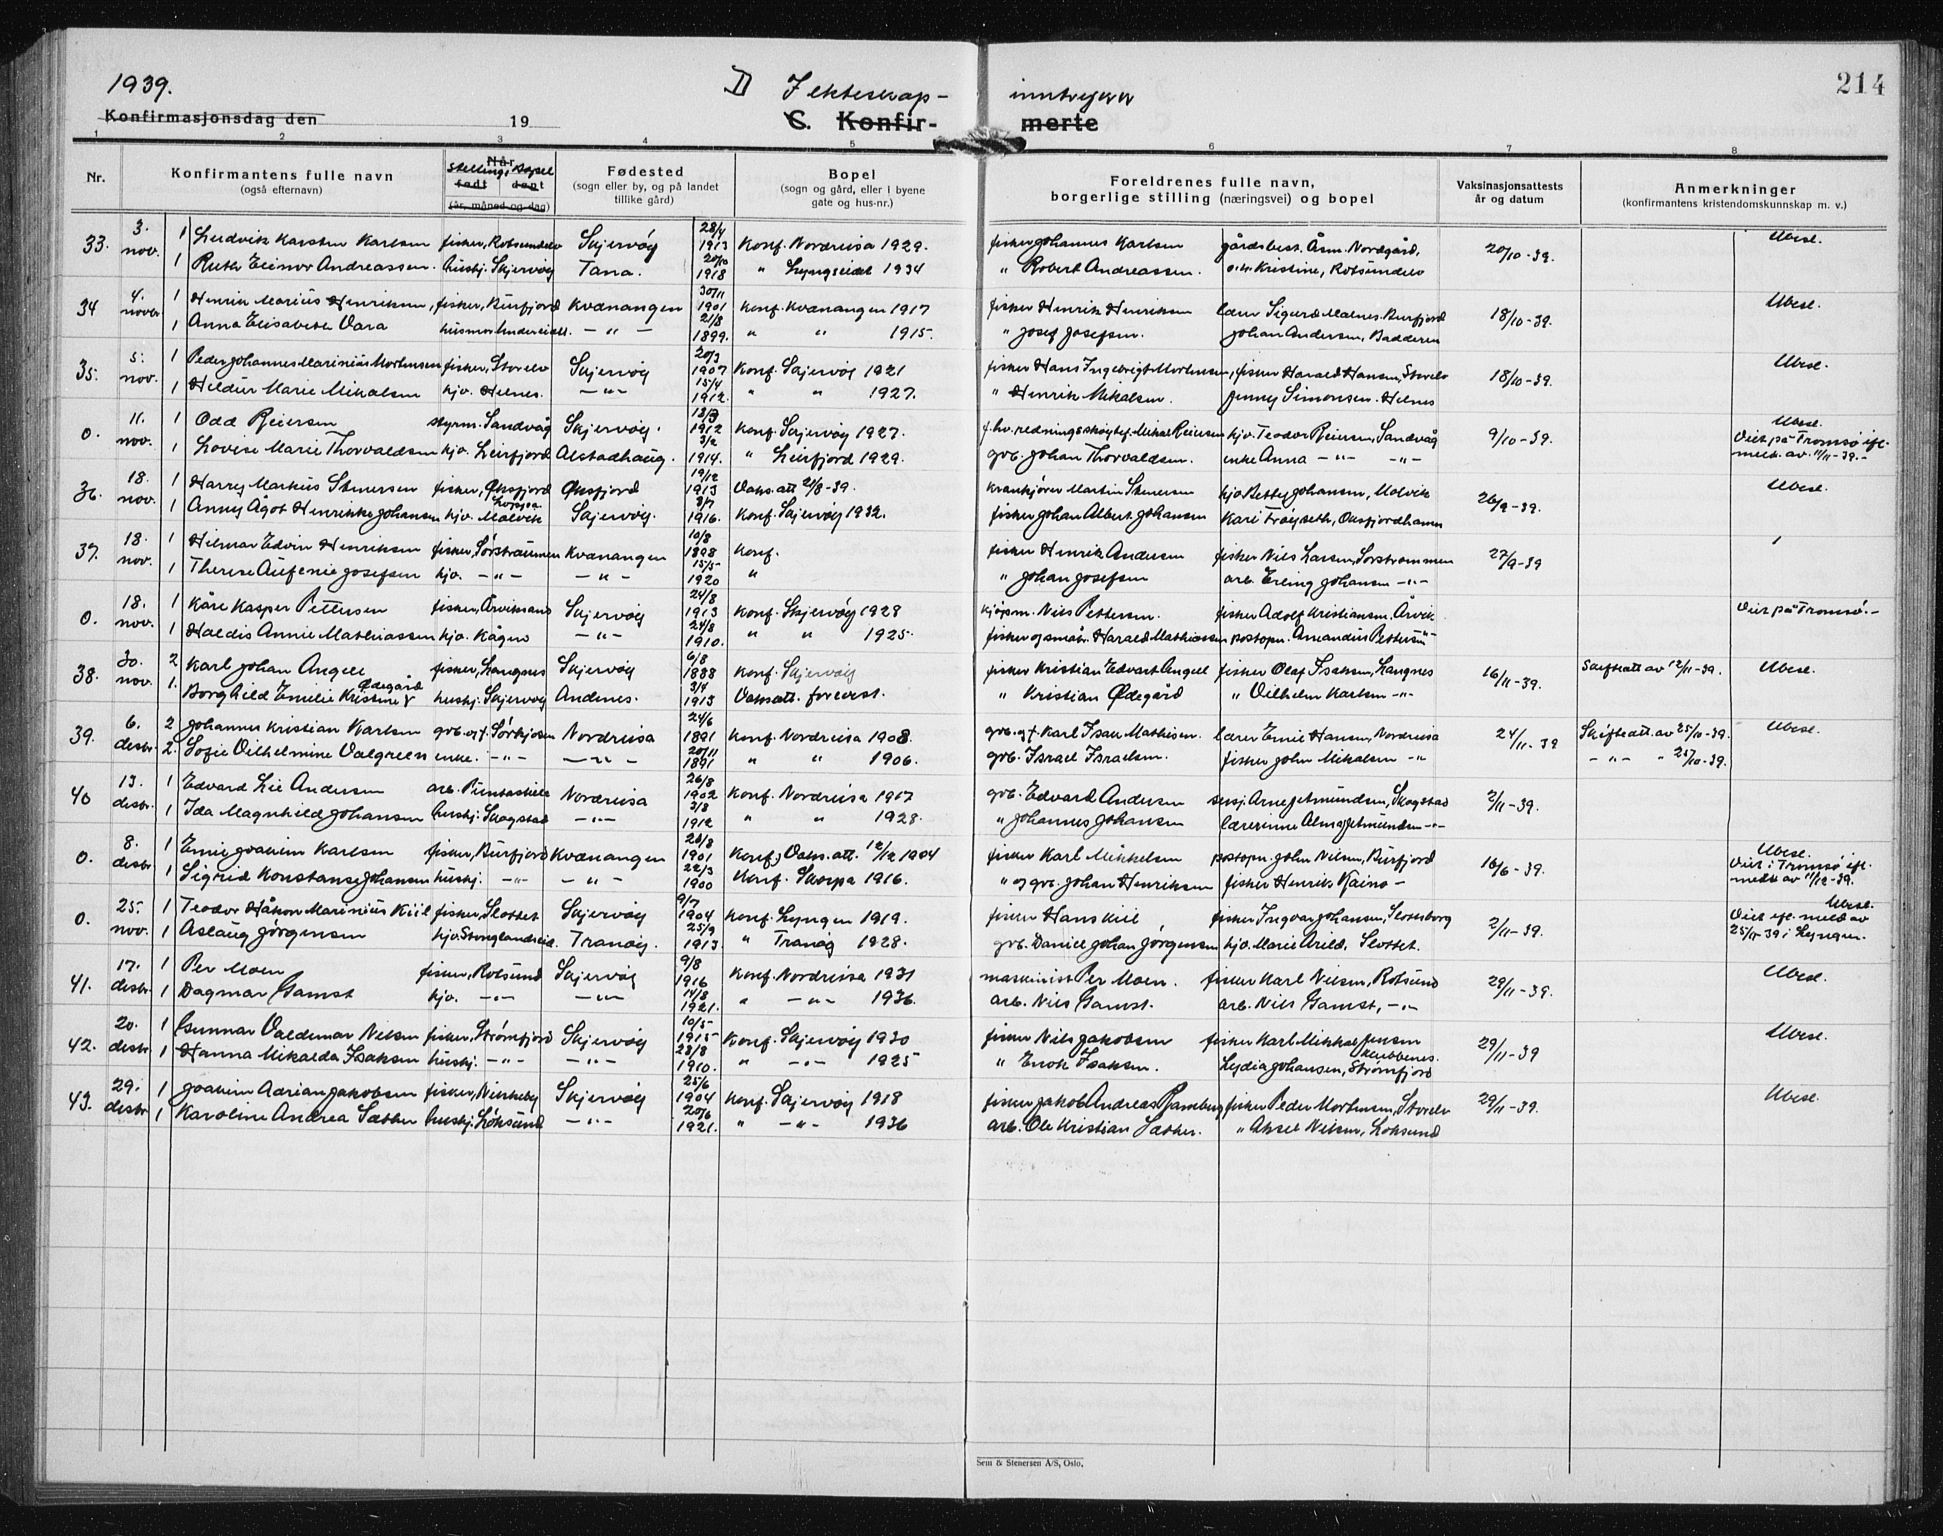 1939.
D I ekteskap- inntrædte
214
Konfirmasjonsdag den 19
C. Konfir- merte
1 2 3 4 5 6 7 8
Nr.
Konfirmantens fulle navn
(også efternavn)
Når
Stilling, Bopel
født døpt
(år, måned og dag)
Fødested
(sogn eller by, og på landet
tillike gård)
Bopel
(sogn og gård, eller i byene
gate og hus-nr.)
Foreldrenes fulle navn,
borgerlige stilling (næringsvei) og bopel
Vaksinasjonsattests
år og datum
Anmerkninger
(konfirmantens kristendomskunnskap m. v.)
33. 3. nov. 1 Ludvik Karsten Karlsen fisker, Rotsundelv Skjervøy 28/4 1913 Konf. Nordreisa 1929. fisker Johannes Karlsen gårdsbest. Åsm. Nordgård, 20/10-39. Ubesl.
1 Ruth Elinor Andreassen. hushj. Skjervøy Tana. 20/10 1918 " Lyngseidet 1934 " Robert Andreassen. o.hr. Kristine, Rotsundelv
34 4. novbr 1 Henrik Marius Henriksen, fisker, Burfjord Kvænangen 30/11 1901 Konf. Kvænangen 1917 fisker Henrik Henriksen lærer Sigurd Malnes. Burfjord 18/10-39. Ubesl.
1 Anna Elisabeth Vara 21/8 1899. " " 1915. " Josef Josefsen. Johan Andersen, Badderen
35. 5. nov. 1 Peder Johannes Marinius Mortensen fisker, Storelv Skjervøy 20/3 1907 Konf. Skjervøy 1921 fisker Hans Ingebrigt Mortensen, fisker Harald Hansen, Storelv 18/10-39. Ubesl.
1 Hildur Marie Mikalsen hjv. Hilnes. -"- 15/4 1912. " " 1927. " Henrik Mikalsen. Jenny Simonsen. Hilnes
0. 11. nov. 1 Odd Reiersen styrm. Sandvåg Skjervøy. 1912 Konf. Skjervøy 1927. Mikal Reiersen hjv. Teodor Reiersen, Sandvåg 9/10-39. Ubesl. Viet på Tromsø ifl.
1 Lovise Marie Thorvaldsen hjv. Leirfjord Alstadhaug. 3/2 1914. " Leirfjord 1929. grb. Johan Thorvaldsen. enke Anna -"- -"- meld. av 11/11-39.-
36. 18. nov. 1 Harry Markus Stenersen fisker, Øksfjord Øksfjord 19/12 1913 Vaks. att 21/8-39. krankjører Martin Stenersen hjv. Betty Johansen, Molvik 26/9-39. Ubesl.
1 Anny Ågot Henrikke Johansen hjv. Loppa Molvik Skjervøy. 3/7 1916. Konf. Skjervøy 1932. fisker Johan Albert Johansen Kari Frøyseth, Oksfjordhamn
37. 18. nov. 1 Hilmar Edvin Henriksen fisker, Sørstraumen Kvænangen 10/8 1898 Konf. fisker Henrik Andersen fisker Nils Larsen, Sørstrømmen 27/9-39
1 Therese Aufenie Josefsen hjv. -"- -"- 15/5 1920 " " Johan Josefsen arb. Erling Johansen -"-
0. 18. nov. 1 Kåre Kasper Pettersen fisker, Årviksand Skjervøy 24/8 1913 Konf. Skjervøy 1928 kjøpm. Nils Pettersen. fisker Adolf Kristiansen, Årvik. Viet på Tromsø.-
1 Haldis Annie Mathiassen hjv. Kågen -"- 24/8 1910. " " 1925. fisker og småbr. Harald Mathiassen postopn. Amandus Pettersen -"-
38. 30. nov. 2 Karl Johan Angell fisker, Langnes Skjervøy 6/8 1888 Konf. Skjervøy fisker Kristian Edvart Angell fisker Olaf Isaksen, Langnes 16/11-39. Skifteatt av 12/11-39. Ubesl.
1. Borghild Emelie Kristine Ødegård hushj. Skjervøy Andenes. 3/4 1913 Vaksatt. forevist. " Kristian Ødegård " Vilhelm Karlsen -"-
39. 6. desbr. 2 Johannes Kristian Karlsen grb. og f. Sørkjosen Nordreisa 24/6 1891 Konf. Nordreisa 1908. grb. og f. Karl Isak Mathisen. lærer Emil Hansen, Nordreisa 24/11-39 Skifteatt av 25/10-39. Ubesl.
2. Sofie Vilhelmine Valgreen enke. -"- -"- 20/11 1891 " " 1906. grb. Israel Israelsen. fisker John Mikalsen -"- -"- " 25/10-39.
40 13. desbr. 1 Edvard Lie Andersen arb. Nordreisa 26/8 1902 Konf. Nordreisa 1917 grb. Edvard Andersen Arne Åmundsen, Skogstad 2/11-39.
1 Ida Magnhild Johansen hushj. Skogstad -"- 2/8 1912 " " 1928. " Johannes Johansen lærerinne Alma Åmundsen -"-
0. 8. desbr 1 Emil Joakim Karlsen fisker, Burfjord Kvænangen 28/8 1901 Konf., Vaks. att. 12/12 1904 fisker Karl Mikkelsen postopn. John Nilsen, Burfjord 16/6-39. Ubesl. Viet i Tromsø ifl.
1 Sigrid Konstanse Johansen hushj. -"- -"- 22/3 1900 Konf. Skorpa 1916. " og grb. Johan Henriksen fisker Henrik Kaino - medd av 11/12-39.
0. 25. nov. 1 Teodor Håkon Marinius Kiil fisker, Slottet Skjervøy 9/7 1904 Konf. Lyngen 1919. fisker Hans Kiil fisker Ingvar Johansen, Slottenborg 2/11-39. Ubesl. Viet ifl. meld av
1 Aslaug Jørgensen hjv. Stonglandseid. Tranøy. 25/9 1913 " Tranøy 1928. grb. Daniel Johan Jørgensen hjv. Marie Arild, Slottet. 25/11 39 i Lyngen.
41. 17. desbr. 1 Per Moen fisker, Rotsund Skjervøy 9/8 1916 Konf. Nordreisa 1931 maskinist Per Moen. fisker Karl Nilsen, Rotsund 29/11-39. Ubesl.
1 Dagmar Gamst hjv. -"- -"- 14/8 1921. " -"- 1936. arb. Nils Gamst. arb. Nils Gamst, -"-
42. 20. desbr 1 Gunnar Valdemar Nilsen fisker, Strømfjord Skjervøy 10/5 1915 Konf. Skjervøy 1930 fisker Nils Jakobsen fisker Karl Mikkal Jensen Klubbenes. 29/11-39 Ubesl.
1 Hanna Mikalda Isaksen hushj. -"- -"- 28/8 1910. " -"- 1925 " Enok Isaksen. Lydia Johansen, Strømfjord
43. 29. desbr 1 Joakim Adrian Jakobsen fisker, Skjervøy 25/6 1904 Konf. Skjervøy 1918 fisker Jakob Andreas Ramberg fisker Peder Mortensen, Storelv 29/11-39. Ubesl.
1 Karoline Andrea Sæther hushj. Løksund -"- 20/6 1921. " -"- 1936 arb. Ole Kristian Sæther. " Aksel Nilsen, Loksund
Sem & Stenersen A/S, Oslo.